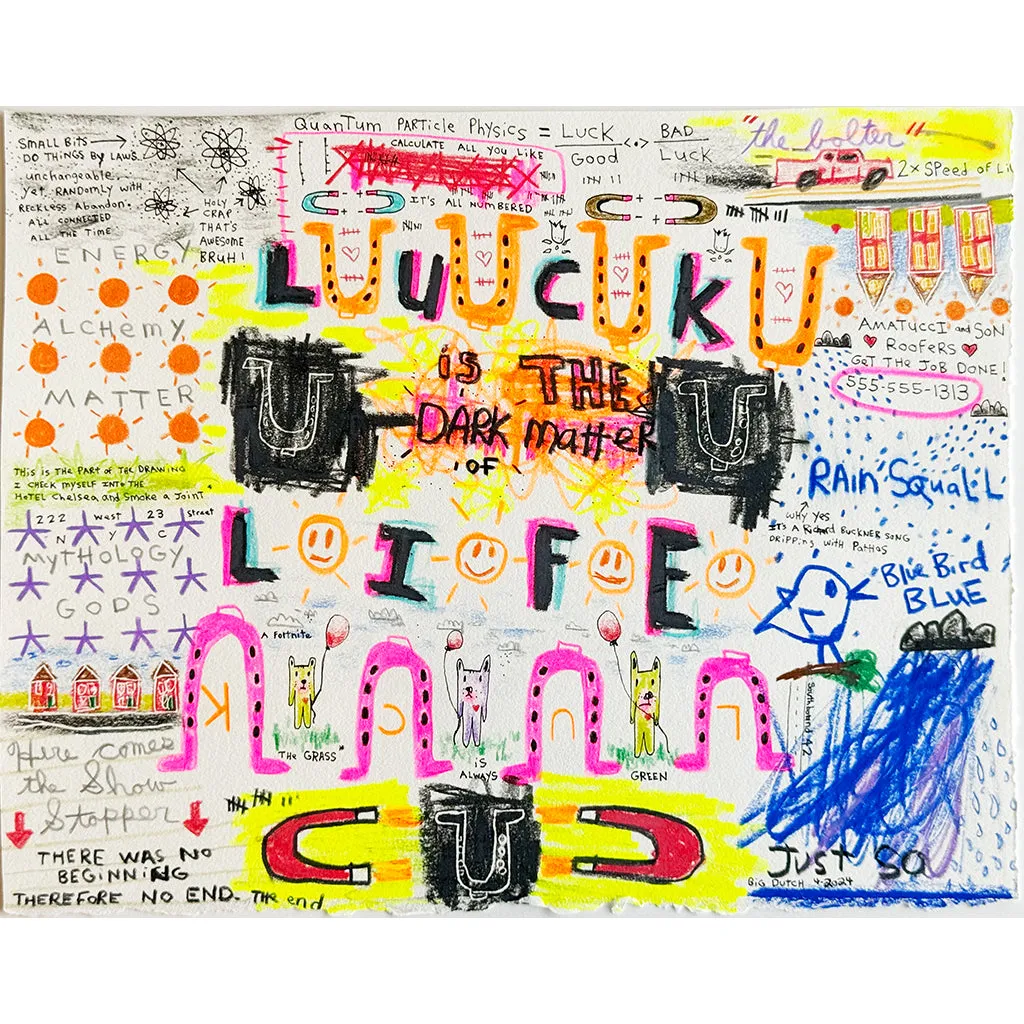 SMALL BITS
DO THINGS BY LAWS.
unchangeable.
yet, RANDOMLY WITH
RECKLESS ABANDON.
ALL CONNECTED
ALL THE TIME
HOLY
CRAP
THAT'S
AWESOME
BRUH!
QuanTum PARTiCLe PHYSiCS = LUCK <·> BAD
Good Luck
CALCULATE ALL YOU LIKE
IT'S ALL NUMBERED
"the bolter"
2x SPeeD of Li
ENERGY
ALCHemy
MATTER
LUCK
is THE
DARK matteR
OF
LIFE
AMATUCCI and SON
ROOFeRS
GeT THe JoB DoNe!
555-555-1313
THis is THE PART OF THE DRAWING
I CHECK MYSELF INTO THE
HOTEL CHelsea and Smoke a JoinT.
222 West 23 Street
N Y C
MYTHOLOGY
GODS
RAin SquaLL
WHY Yes
ITS A Richard BUCKNER SONG
DRIPPING WITH PATHOS
BLue Bird
BLUE
A Fortnite
K C U L
THe GRASS"
iS
ALWAYS
GREEN
Southbound 42
Here comes
the Show
Stopper
THERE WAS No
BEGINNING
THEREFORE NO END. THe end
Just So
BiG DUTCH 4-2024